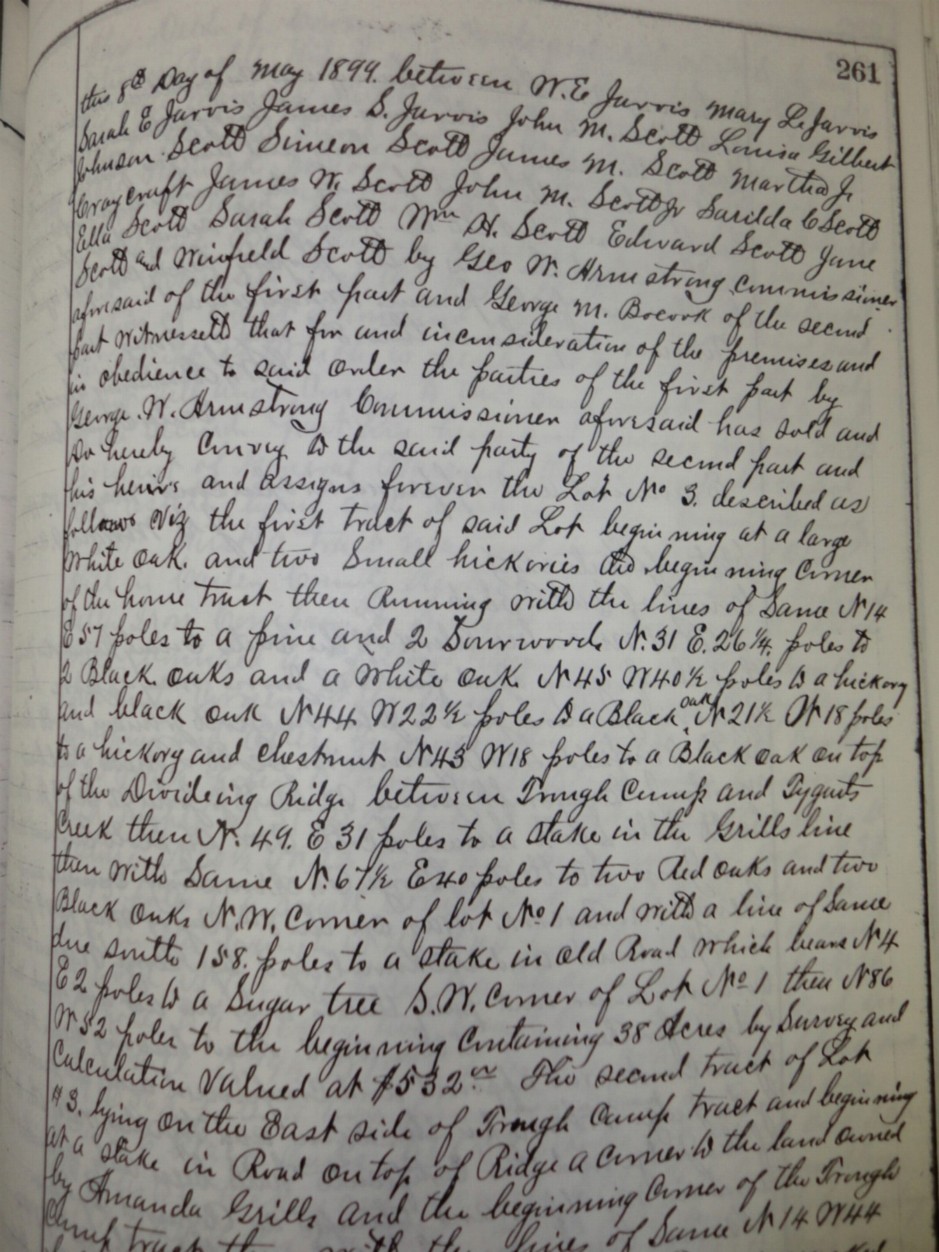 261
this 8th Day of May 1899. between W.E Jarvis Mary L. Jarvis
Sarah E Jarvis James S. Jarvis John M. Scott Louisa Gilbert
Johnson Scott Simeon Scott James M. Scott Martha J.
Craycraft James W. Scott John M. Scott Jr Sarilda C Scott
Ella Scott Sarah Scott Wm H. Scott Edward Scott Jane
Scott and Winfield Scott by Geo W. Armstrong Commissioner
aforesaid of the first part and George M. Bocook of the second
part Witnesseth that for and inconsideration of the premises and
in obedience to said Order the parties of the first part by
George W. Armstrong Commissioner aforesaid has sold and
do hereby Convey to the said party of the second part and
his heirs and assigns forever the Lot No 3. described as
follows Viz the first tract of said Lot beginning at a large
White Oak. and two Small hickories the beginning Corner
of the home tract then Running with the lines of Same N14
E57 poles to a pine and 2 Sourwoods N.31 E.26¼ poles to
2 Black oaks and a White oak N45 W40½ poles to a hickory
and black oak N44 W22½ poles to a Black oak N21½ W18 poles
to a hickory and Chestnut N43 W18 poles to a Black oak on top
of the Divideing Ridge between Trough Camp and Tygarts
Creek then N. 49. E 31 poles to a stake in the Grills line
then with Same N.67½ E40 poles to two Red oaks and two
Black Oaks N.W. Corner of lot No 1 and with a line of Same
due south 158. poles to a stake in old Road which bears N4
E2 poles to a Sugar tree S.W. Corner of Lot No 1 then N86
W52 poles to the beginning Containing 38 Acres by Survey and
Calculation Valued at $532 The second tract of Lot
#3. lying on the East side of Trough Camp tract and beginning
at a stake in Road on top of Ridge a Corner to the land owned
by Amanda Grills and the beginning Corner of the Trough
Camp tract with the lines of Same N14 W44